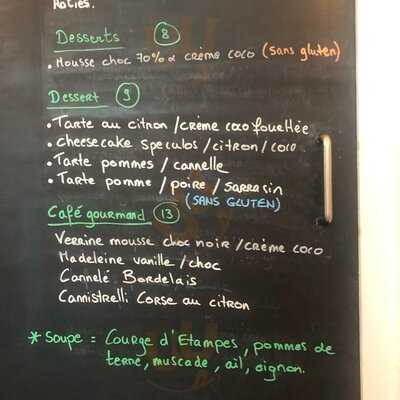 Racies.
Desserts 8
• Mousse choc 70% & crème coco (sans gluten)
Dessert 9
• Tarte au citron / crème coco fouettée
• Cheesecake speculos / citron / coco
• Tarte pommes / cannelle
• Tarte pomme / poire / sarrasin
(SANS GLUTEN)
Café gourmand 13
Verrine mousse choc noir / crème coco
Madeleine vanille / choc
Cannelé Bordelais
Cannistrelli Corse au citron
* Soupe = Courge d'Etampes, pommes de
terre, muscade, ail, oignon.